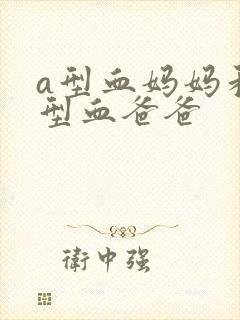 a型血妈妈
型血爸爸
衛中强